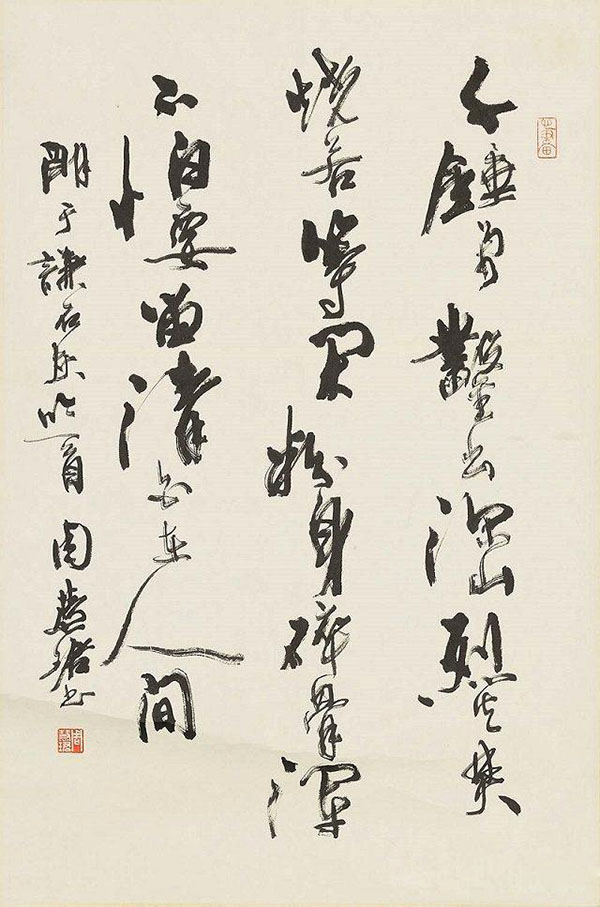 千錘萬鑿出深山烈火焚
燒若等閑粉身碎骨渾
不怕要留清白在人间
明于謙石灰吟一首 周慧珺书